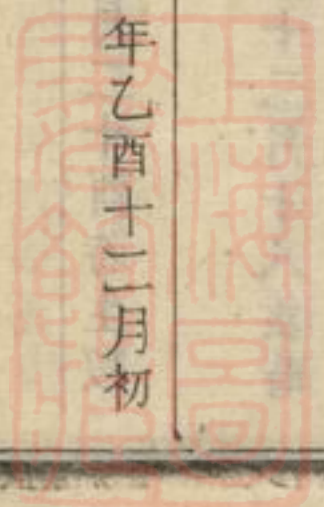 年乙酉十二月初